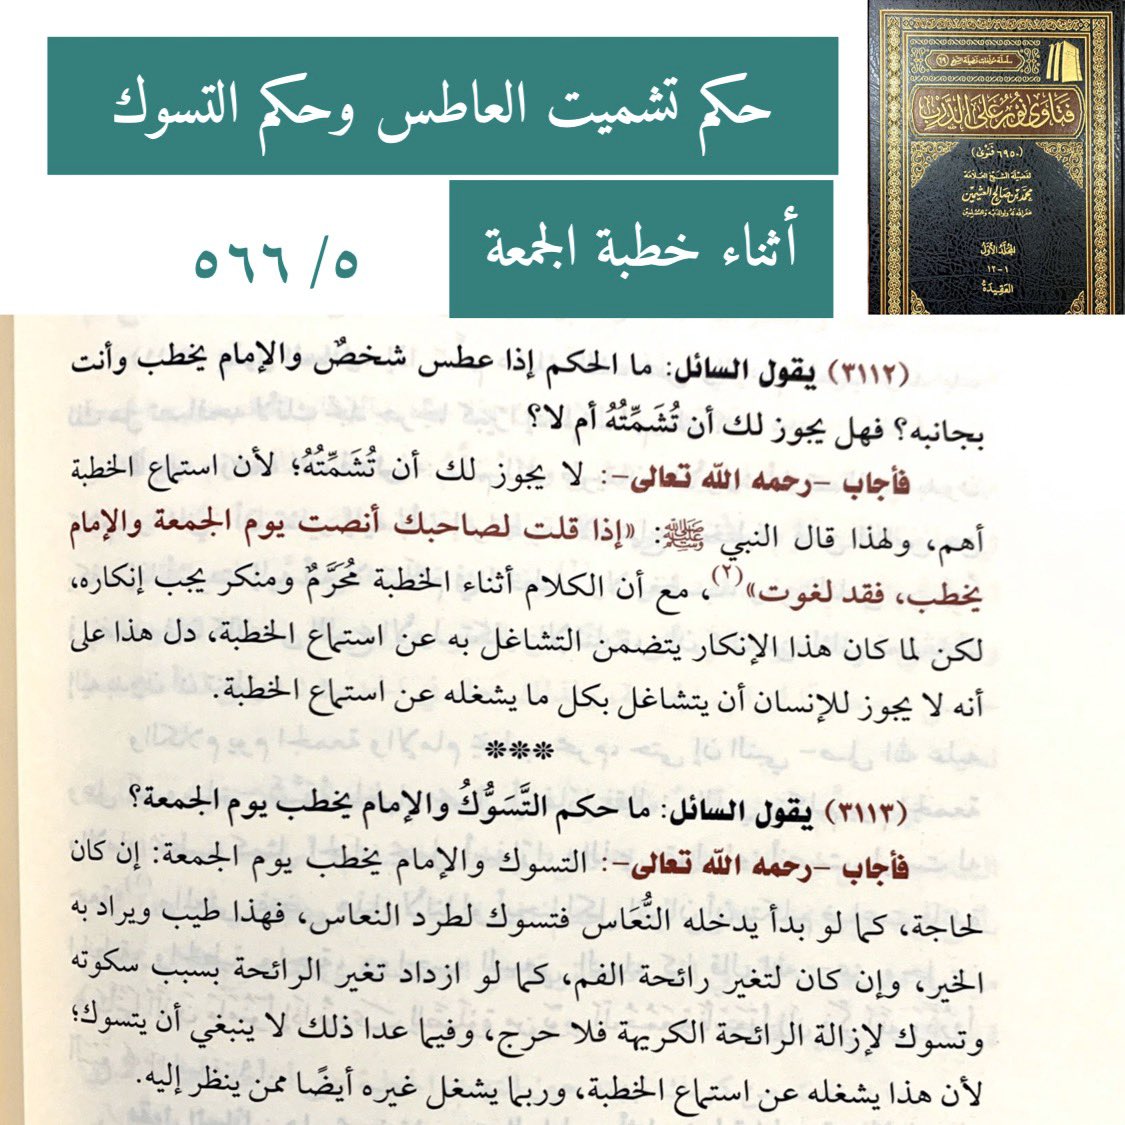 حكم تشميت العاطس وحكم التسوك
أثناء خطبة الجمعة
٥/ ٥٦٦
فتاوى نور على الدرب
(٦٩٥٠ فتوى)
لفضيلة الشيخ العلامة
محمد بن صالح العثيمين
غفر الله له ولوالديه وللمسلمين
المجلد الأول
١ - ١٢
العقيدة
(٣١١٢) يقول السائل: ما الحكم إذا عطس شخصٌ والإمام يخطب وأنت
بجانبه؟ فهل يجوز لك أن تُشَمِّتُهُ أم لا؟
فأجاب –رحمه الله تعالى–: لا يجوز لك أن تُشَمِّتُهُ؛ لأن استماع الخطبة
أهم، ولهذا قال النبي ﷺ: «إذا قلت لصاحبك أنصت يوم الجمعة والإمام
يخطب، فقد لغوت»(٢)، مع أن الكلام أثناء الخطبة مُحَرَّمٌ ومنكر يجب إنكاره،
لكن لما كان هذا الإنكار يتضمن التشاغل به عن استماع الخطبة، دل هذا على
أنه لا يجوز للإنسان أن يتشاغل بكل ما يشغله عن استماع الخطبة.
***
(٣١١٣) يقول السائل: ما حكم التَّسَوُّكُ والإمام يخطب يوم الجمعة؟
فأجاب –رحمه الله تعالى–: التسوك والإمام يخطب يوم الجمعة: إن كان
لحاجة، كما لو بدأ يدخله النُّعَاس فتسوك لطرد النعاس، فهذا طيب ويراد به
الخير، وإن كان لتغير رائحة الفم، كما لو ازداد تغير الرائحة بسبب سكوته
وتسوك لإزالة الرائحة الكريهة فلا حرج، وفيما عدا ذلك لا ينبغي أن يتسوك؛
لأن هذا يشغله عن استماع الخطبة، وربما يشغل غيره أيضًا ممن ينظر إليه.